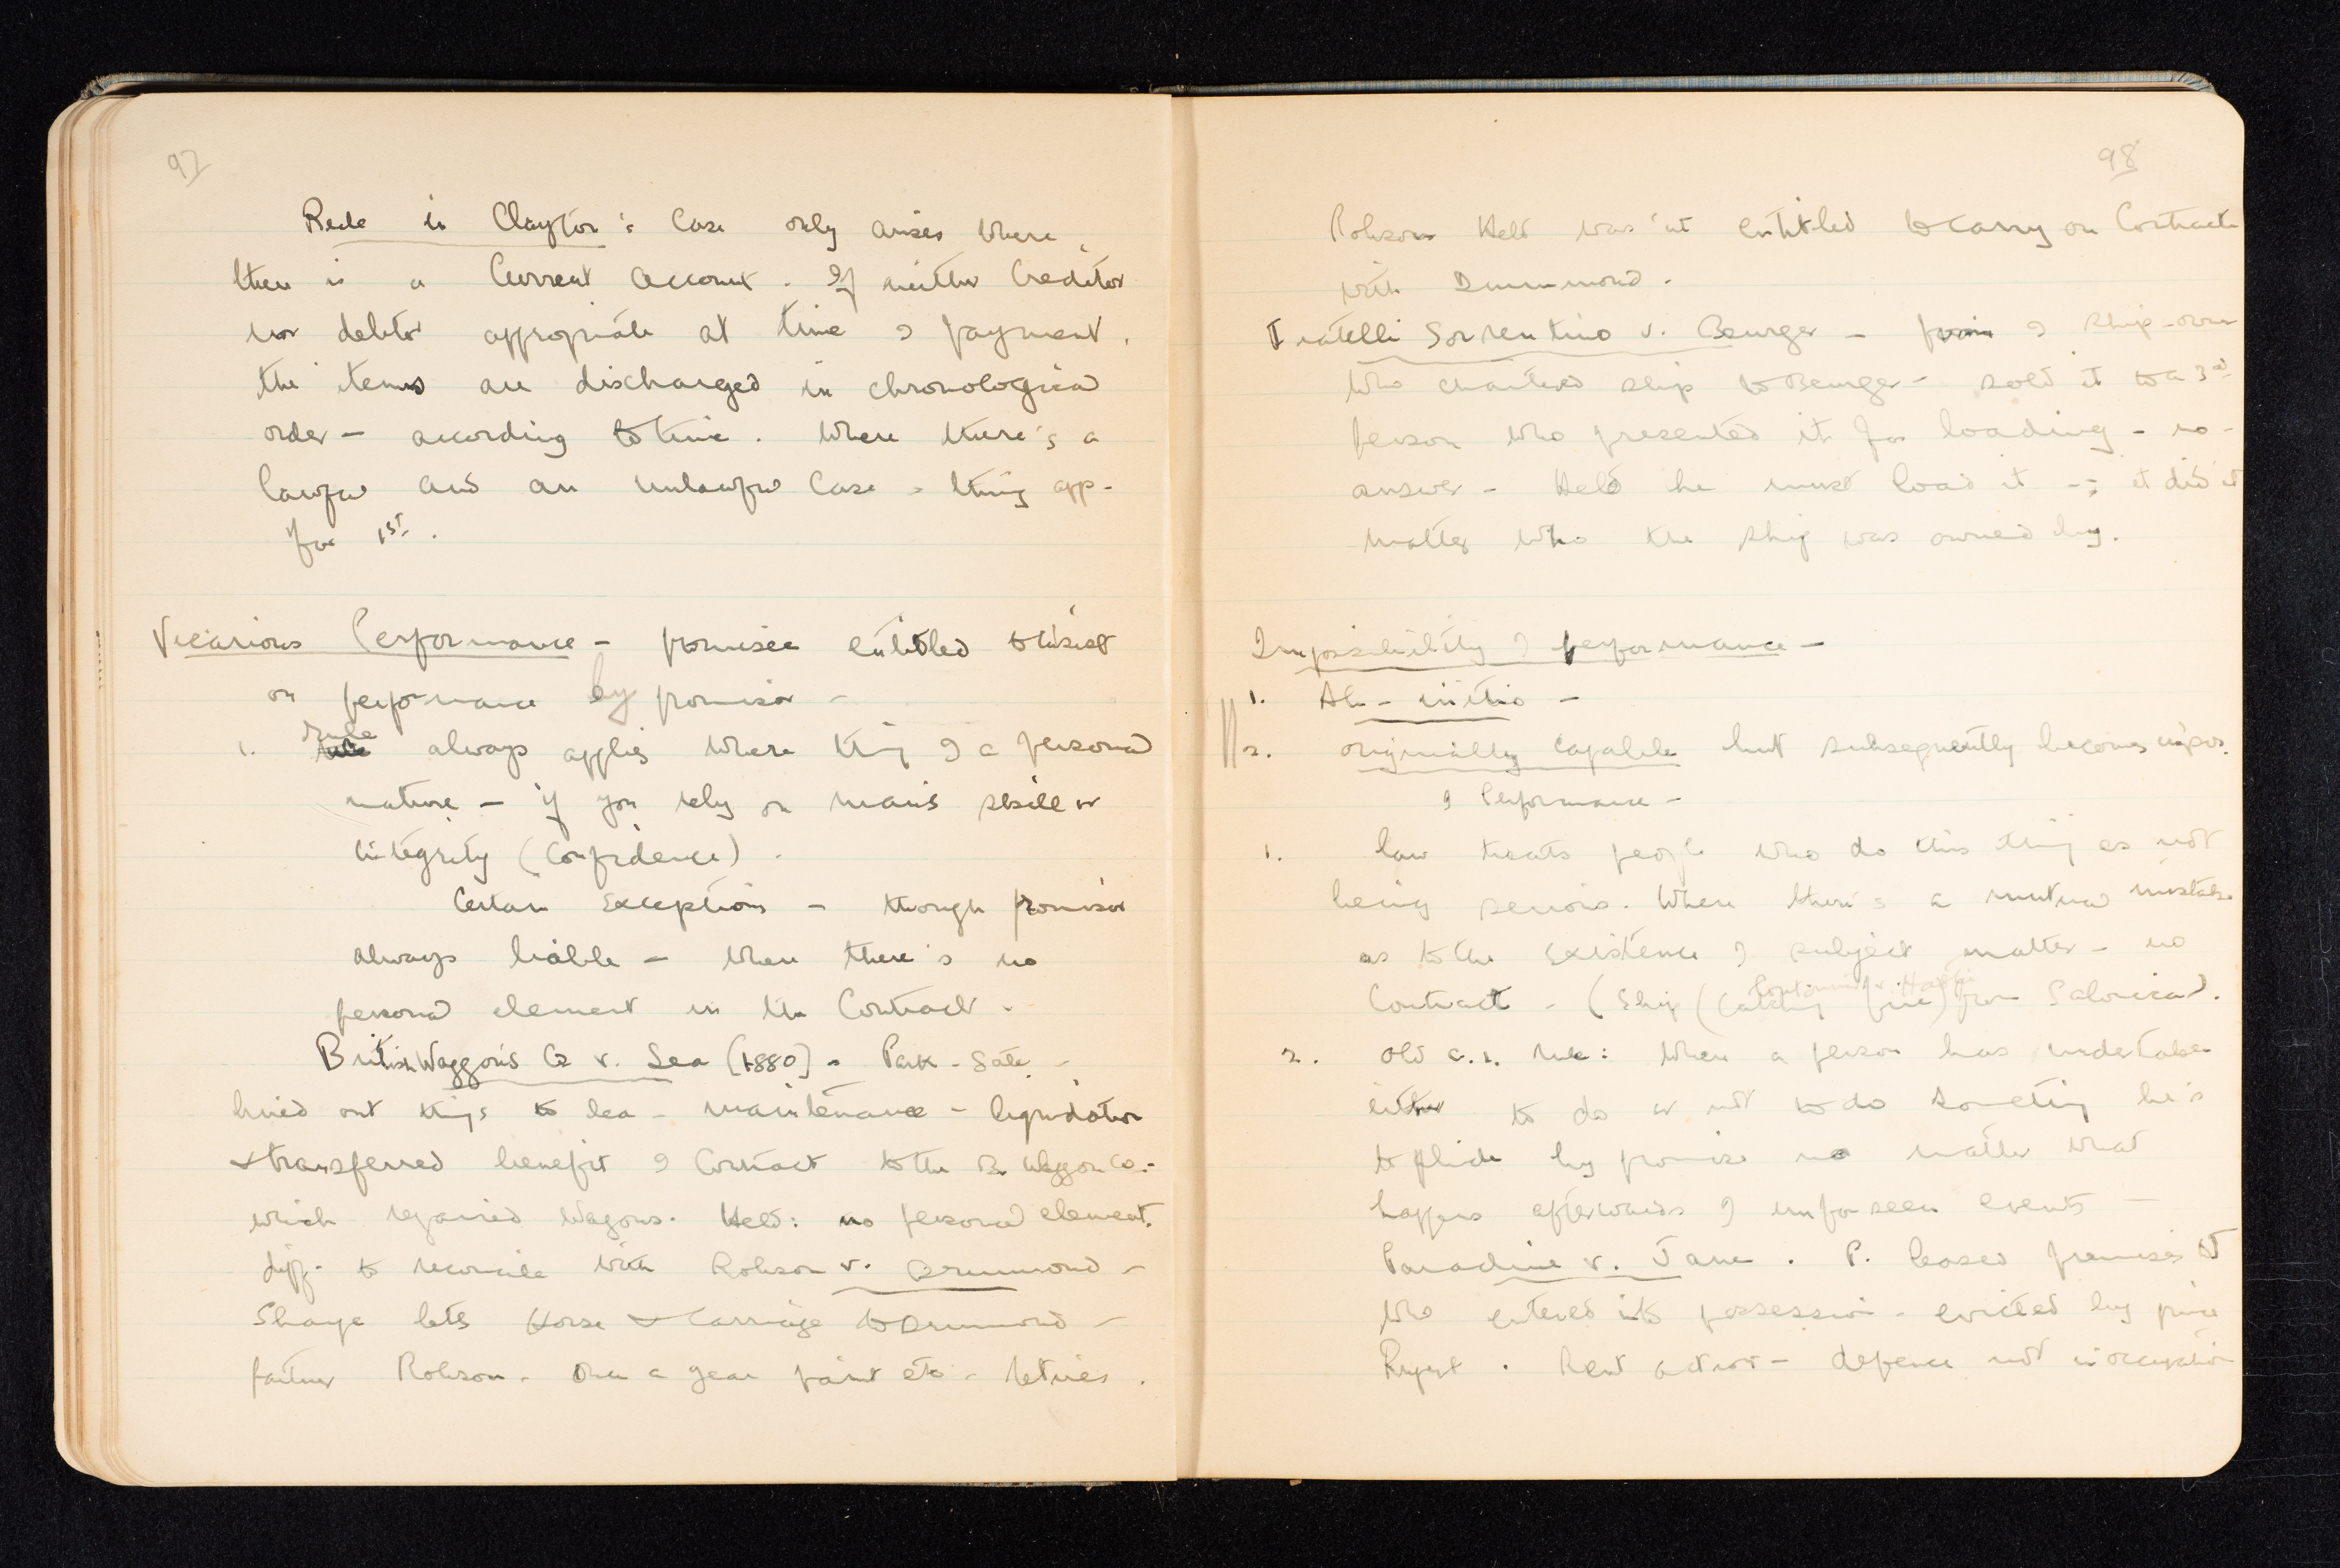 97
Rule in Clayton's Case only arises where
there is a Current Account. If neither Creditor
nor debtor appropriate at time of payment,
the items are discharged in chronological
order – according to time. Where there's a
lawful and an unlawful Case – thing app-
for 1st.
Vicarious Performance – promisee entitled to insist
on performance by promisor –
1. Rule always applies where thing of a personal
nature – if you rely on man's skill or
integrity (Confidence).
Certain Exceptions – though promisor
always liable – when there's no
personal element in the Contract.
British Waggon's Co v. Lea (1880) – Park-Gate –
hired out things to Lea – maintenance – liquidation
& transferred benefit of Contract to the B. Waggon Co. –
which repaired Wagons. Held: no personal element.
diff. to reconcile with Robson v. Drummond –
Sharpe lets Horse & Carriage to Drummond –
partner Robson. Once a year paint etc – retires.
98
Robson Held was'nt entitled to carry on Contract
with Drummond.
Fratelli Sorrentino v. Buerger – firm of Ship-owner
who chartered ship to Buerger – sold it to a 3rd
person who presented it for loading – no –
answer – Held he must load it –: it did'nt
matter who the ship was owned by.
Impossibility of performance –
1. Ab-initio –
2. originally capable but subsequently becomes impos.
of Performance –
1. law treats people who do this thing as not
being serious. Where there's a mutual mistake
as to the existence of subject matter – no
Couturier v. Hastie
Contract – (Ship (Catching fire) from Salonica).
2. Old C.L. rule: When a person has undertaken
either to do or not to do something he's
to abide by promise no matter what
happens afterwards of unforseen events –
Paradine v. Jane. P. leased premises to J
who entered into possession – evicted by prince
Rupert. Rent action – defence not in occupation